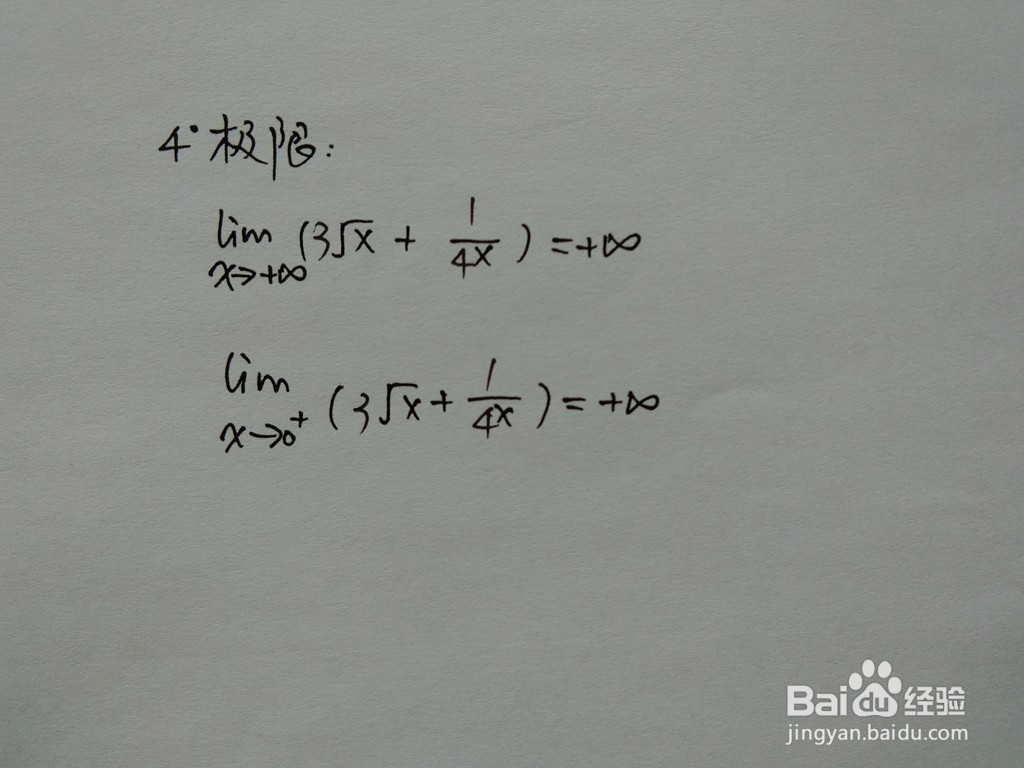 4° 极限:
lim x→+∞ (3√x + 1/4x) = +∞
lim x→0⁺ (3√x + 1/4x) = +∞
Bai du 经验
jingyan.baidu.com